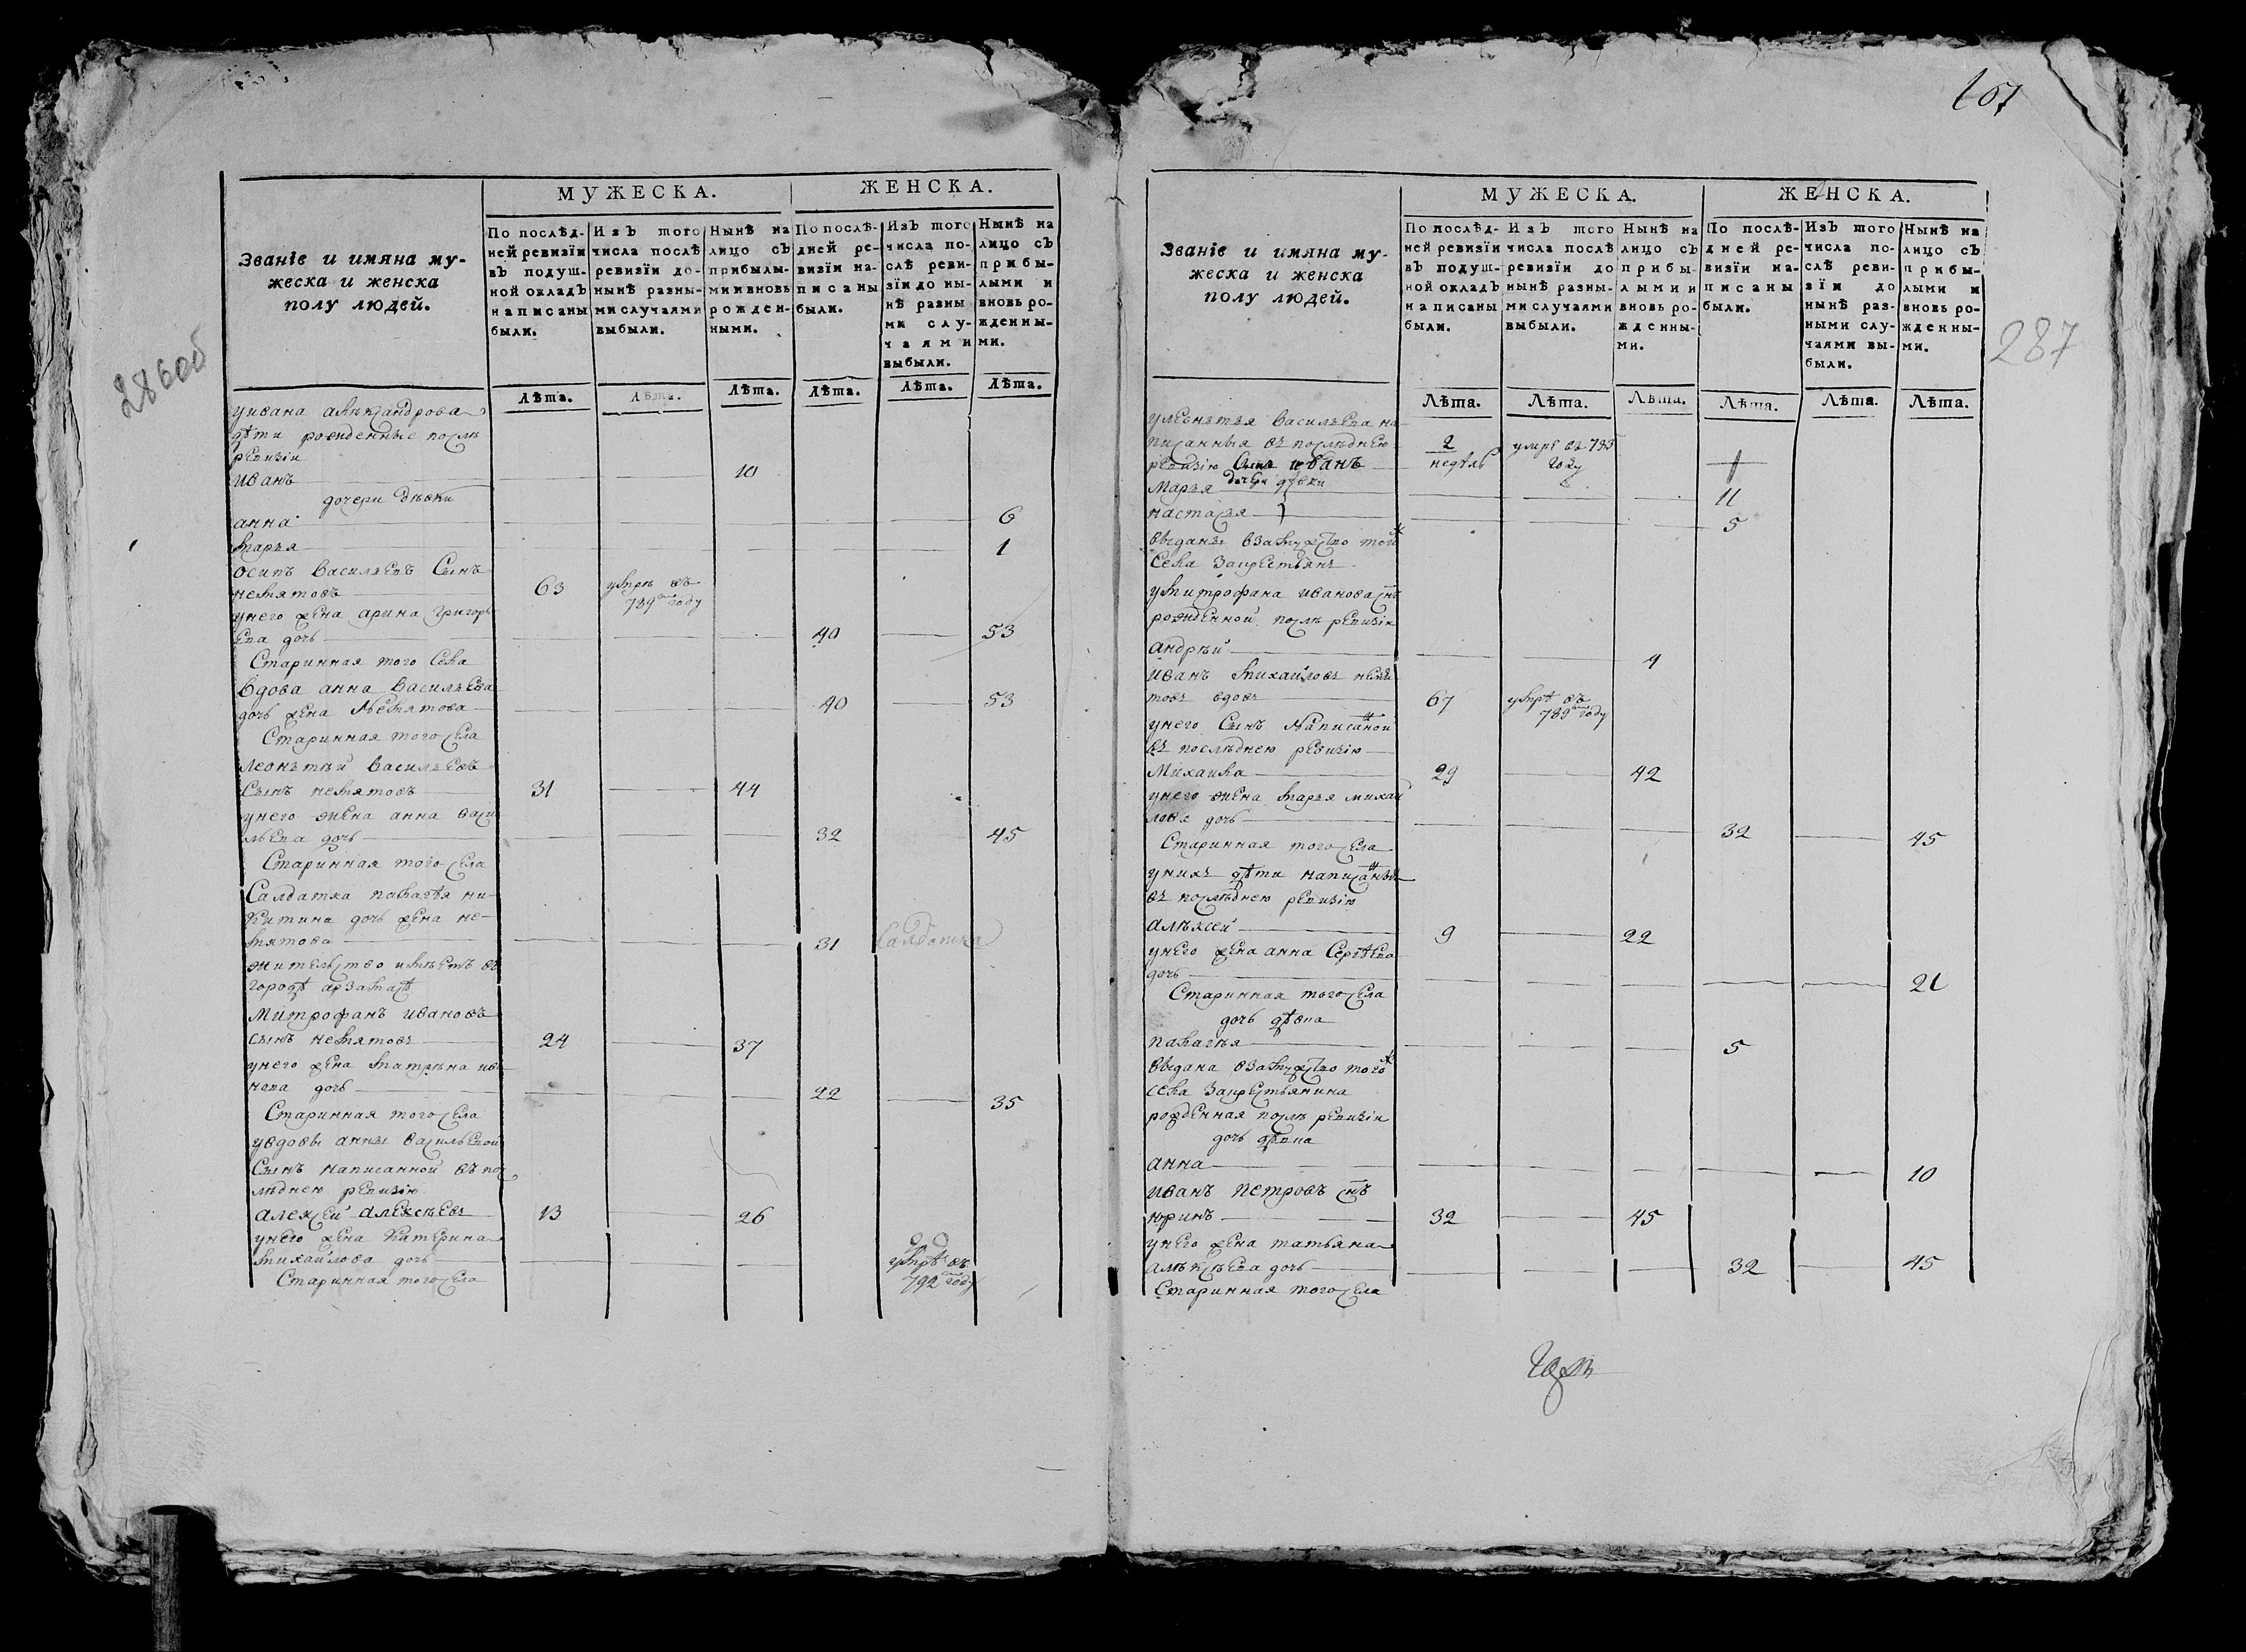 286об
МУЖЕСКА.
ЖЕНСКА.
Званїе и имяна му-
жеска и женска
полу людей.
По послѣд-
ней ревизїи
въ подуш-
ной окладъ
написаны
были.
Изъ того
числа послѣ
ревизїи до-
нынѣ разны-
ми случаями
выбыли.
Нынѣ на
лицо съ
прибылы-
ми и вновь
рожден-
ными.
По послѣ-
дней ре-
визїи на-
писаны
были.
Изъ того
числа по-
слѣ реви-
зїи до ны-
нѣ разны
ми слу-
чаями
выбыли.
Нынѣ на
лицо съ
прибы-
лыми и
вновь ро-
жденны-
ми.
Лѣта. Лѣта. Лѣта. Лѣта. Лѣта. Лѣта.
уивана алѣксандрова
дѣти рожденные послѣ
ревизіи
иванъ 10
дочери дѣвки
анна 6
марья 1
осипъ васильевъ сынъ
немятовъ 63 умрѣ въ
789м году
унего жена арина григорь
ева дочь 40 53
Старинная того села
вдова анна васильева
дочь жена Немятова 40 53
Старинная того села
леонътѣй васильевъ
сынъ немятовъ 31 44
унего жена анна васи
льева дочь 32 45
Старинная того села
Салдатка палагѣя ни-
китина дочь жена не-
мятова 31 Салдатка
жительство имѣетъ въ
городѣ арзамасѣ
Митрофанъ ивановъ
сынъ немятовъ 24 37
унего жена матрѣна ива
нова дочь 22 35
Старинная того села
увдовы анны васильевой
Сынъ написанной въ пос
лѣднею ревизію
алексей алексѣевъ 13 26
унего жена катерина
михайлова дочь умрѣ въ
792м году
Старинная того села
167
287
МУЖЕСКА.
ЖЕНСКА.
Званїе и имяна му-
жеска и женска
полу людей.
По послѣд-
ней ревизїи
въ подуш-
ной окладъ
написаны
были.
Изъ того
числа послѣ
ревизїи до
нынѣ разны-
ми случаями
выбыли.
Нынѣ на
лицо съ
прибы-
лыми и
вновь ро-
жденны-
ми.
По послѣ-
дней ре-
визїи на-
писаны
были.
Изъ того
числа по-
слѣ реви-
зїи до
нынѣ раз-
ными слу-
чаями вы-
были.
Нынѣ на
лицо съ
прибы-
лыми и
вновь ро-
жденны-
ми.
Лѣта. Лѣта. Лѣта. Лѣта. Лѣта. Лѣта.
улеонътья васильева на
писанныя въ послѣднею
ревизію сынъ иванъ 2
недѣль умре въ 783
году
дочери дѣвки
Марья 11
настасья 5
выданы взамужство тогож
села закрестьянъ
умитрофана иванова снъ
рожденной послѣ ревизіи
андрѣй 4
иванъ михайловъ немя
товъ вдовъ 67 умрѣ въ
789м году
унего сынъ написаной
въ послѣднею ревизію
Михаила 29 42
унего жена марья михай
лова дочь 32 45
Старинная того села
унихъ дѣти написаны
въ послѣднею ревизію
алѣксей 9 22
унего жена анна Сергѣева
дочь 21
Старинная того села
дочь дѣвка
палагѣя 5
выдана взамужство тогож
села закрестьянина
рожденная послѣ ревизіи
дочь дѣвка
анна 10
иванъ петровъ снъ
юринъ 32 45
унего жена татьяна
алѣксѣева дочь 32 45
Старинная того села